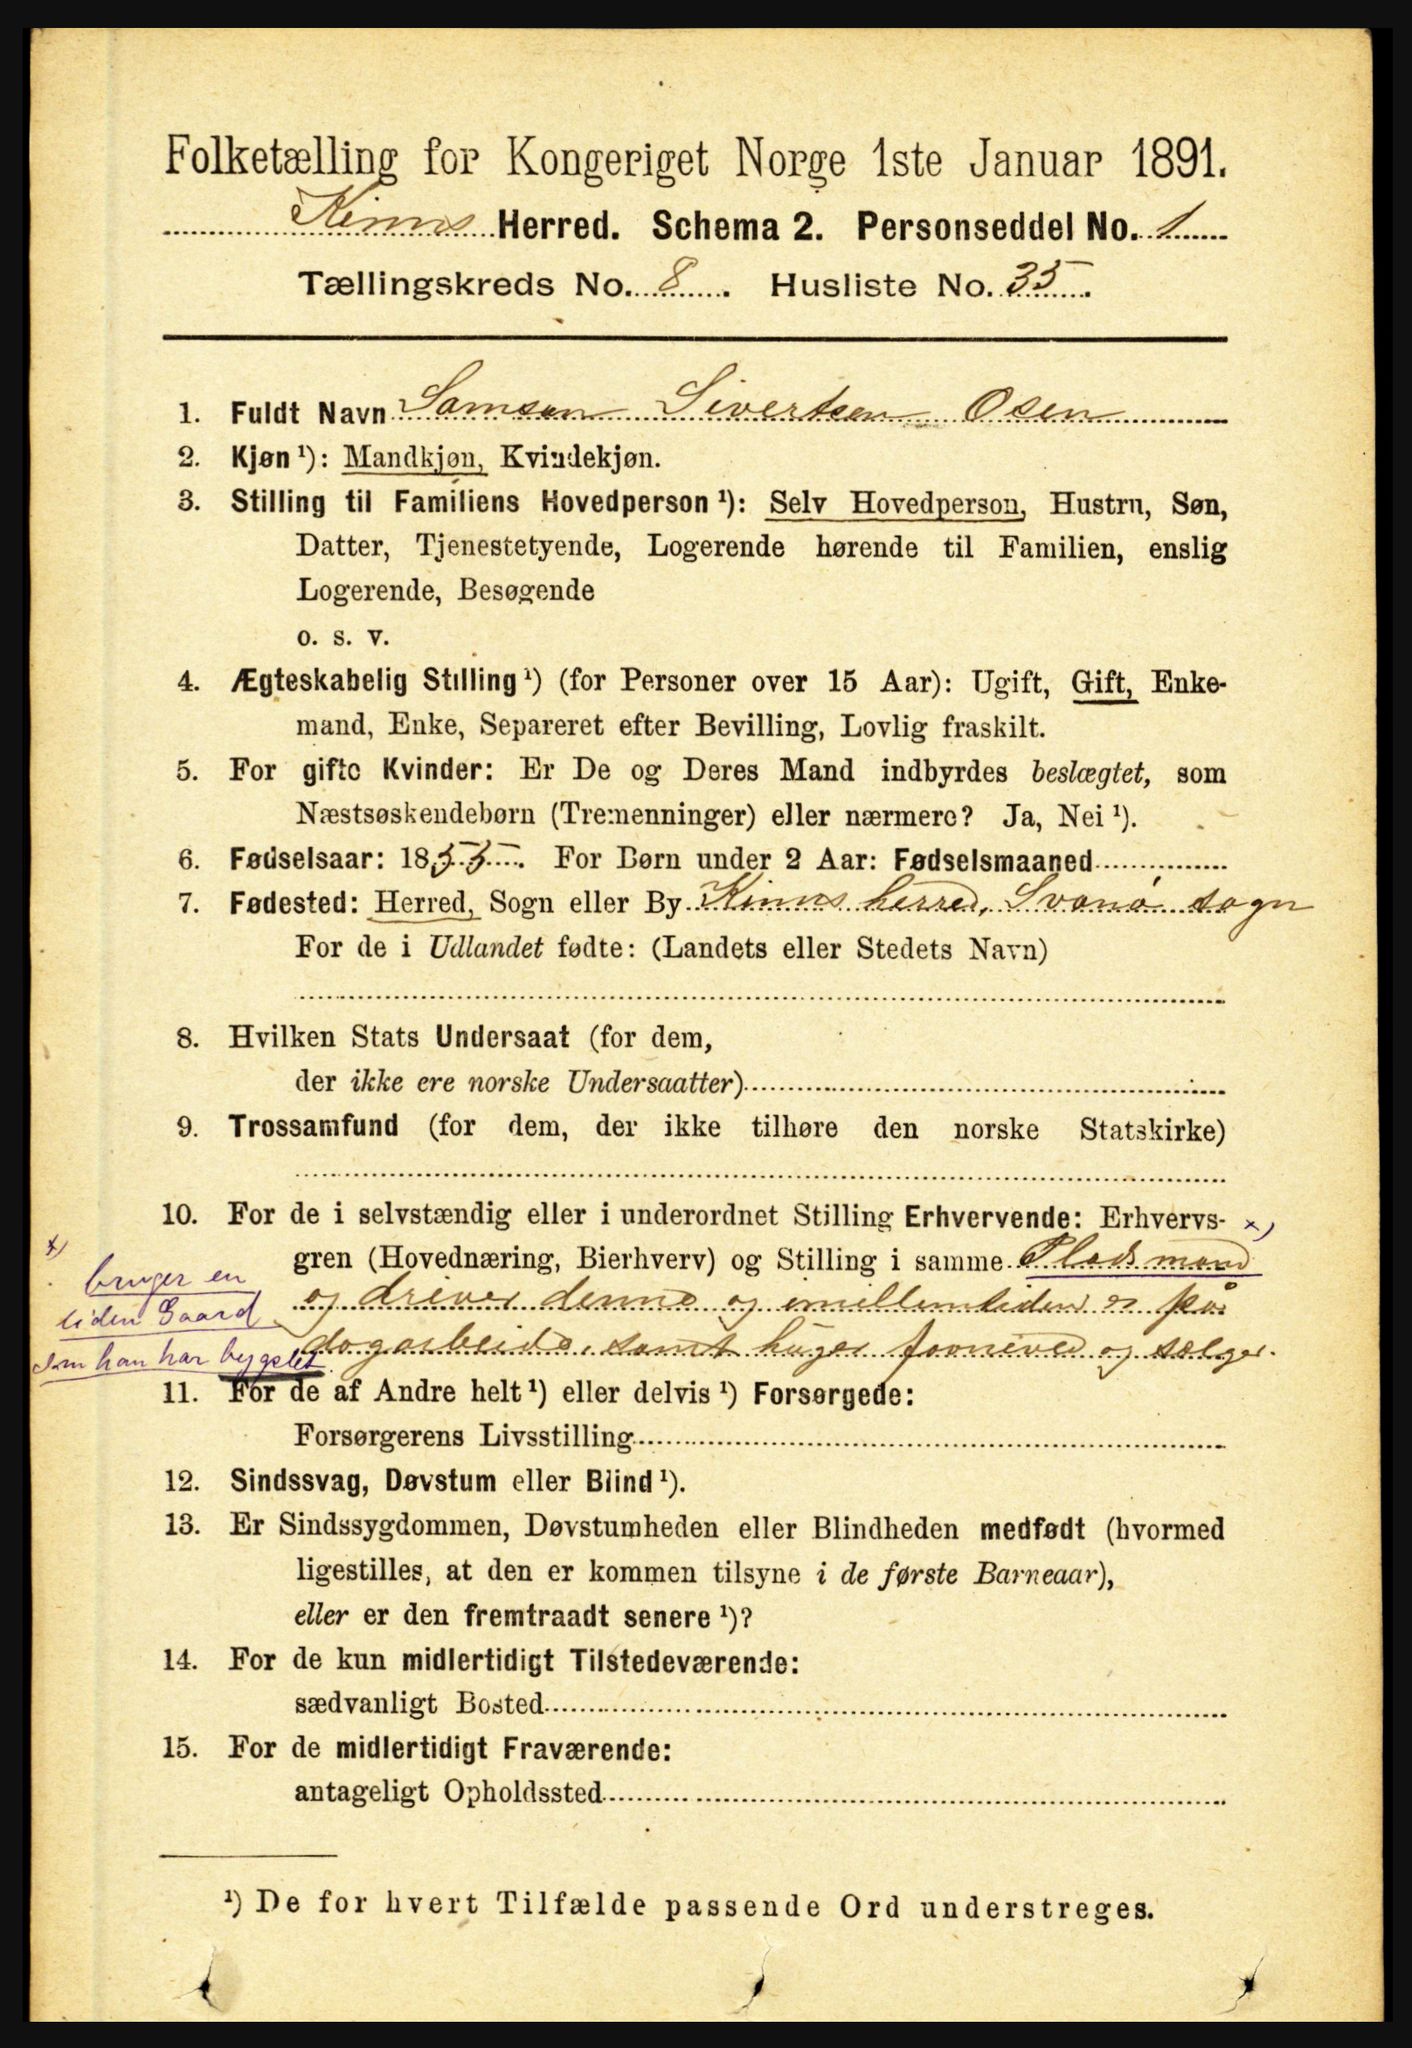 Folketælling for Kongeriget Norge 1ste Januar 1891.
Kinns Herred. Schema 2. Personseddel No. 1
Tællingskreds No. 8. Husliste No. 35.
1. Fuldt Navn Samson Sivertsen Osen
2. Kjøn ¹): Mandkjøn, Kvindekjøn.
3. Stilling til Familiens Hovedperson ¹): Selv Hovedperson, Hustru, Søn,
Datter, Tjenestetyende, Logerende hørende til Familien, enslig
Logerende, Besøgende
o. s. v.
4. Ægteskabelig Stilling ¹) (for Personer over 15 Aar): Ugift, Gift, Enke-
mand, Enke, Separeret efter Bevilling, Lovlig fraskilt.
5. For gifte Kvinder: Er De og Deres Mand indbyrdes beslægtet, som
Næstsøskendebørn (Tremenninger) eller nærmere? Ja, Nei ¹).
6. Fødselsaar: 1855. For Børn under 2 Aar: Fødselsmaaned
7. Fødested: Herred, Sogn eller By Kinns herred, Svanø sogn
For de i Udlandet fødte: (Landets eller Stedets Navn)
8. Hvilken Stats Undersaat (for dem,
der ikke ere norske Undersaatter)
9. Trossamfund (for dem, der ikke tilhøre den norske Statskirke)
10. For de i selvstændig eller i underordnet Stilling Erhvervende: Erhvervs- x)
gren (Hovednæring, Bierhverv) og Stilling i samme Pladsmand
og driver denne og imellemtiden er på
dagarbeide, samt huger favneved og sælger.
x)
bruger en
liden Gaard
som han har bygslet
11. For de af Andre helt ¹) eller delvis ¹) Forsørgede:
Forsørgerens Livsstilling
12. Sindssvag, Døvstum eller Blind ¹).
13. Er Sindssygdommen, Døvstumheden eller Blindheden medfødt (hvormed
ligestilles, at den er kommen tilsyne i de første Barneaar),
eller er den fremtraadt senere ¹)?
14. For de kun midlertidigt Tilstedeværende:
sædvanligt Bosted
15. For de midlertidigt Fraværende:
antageligt Opholdssted
¹) De for hvert Tilfælde passende Ord understreges.